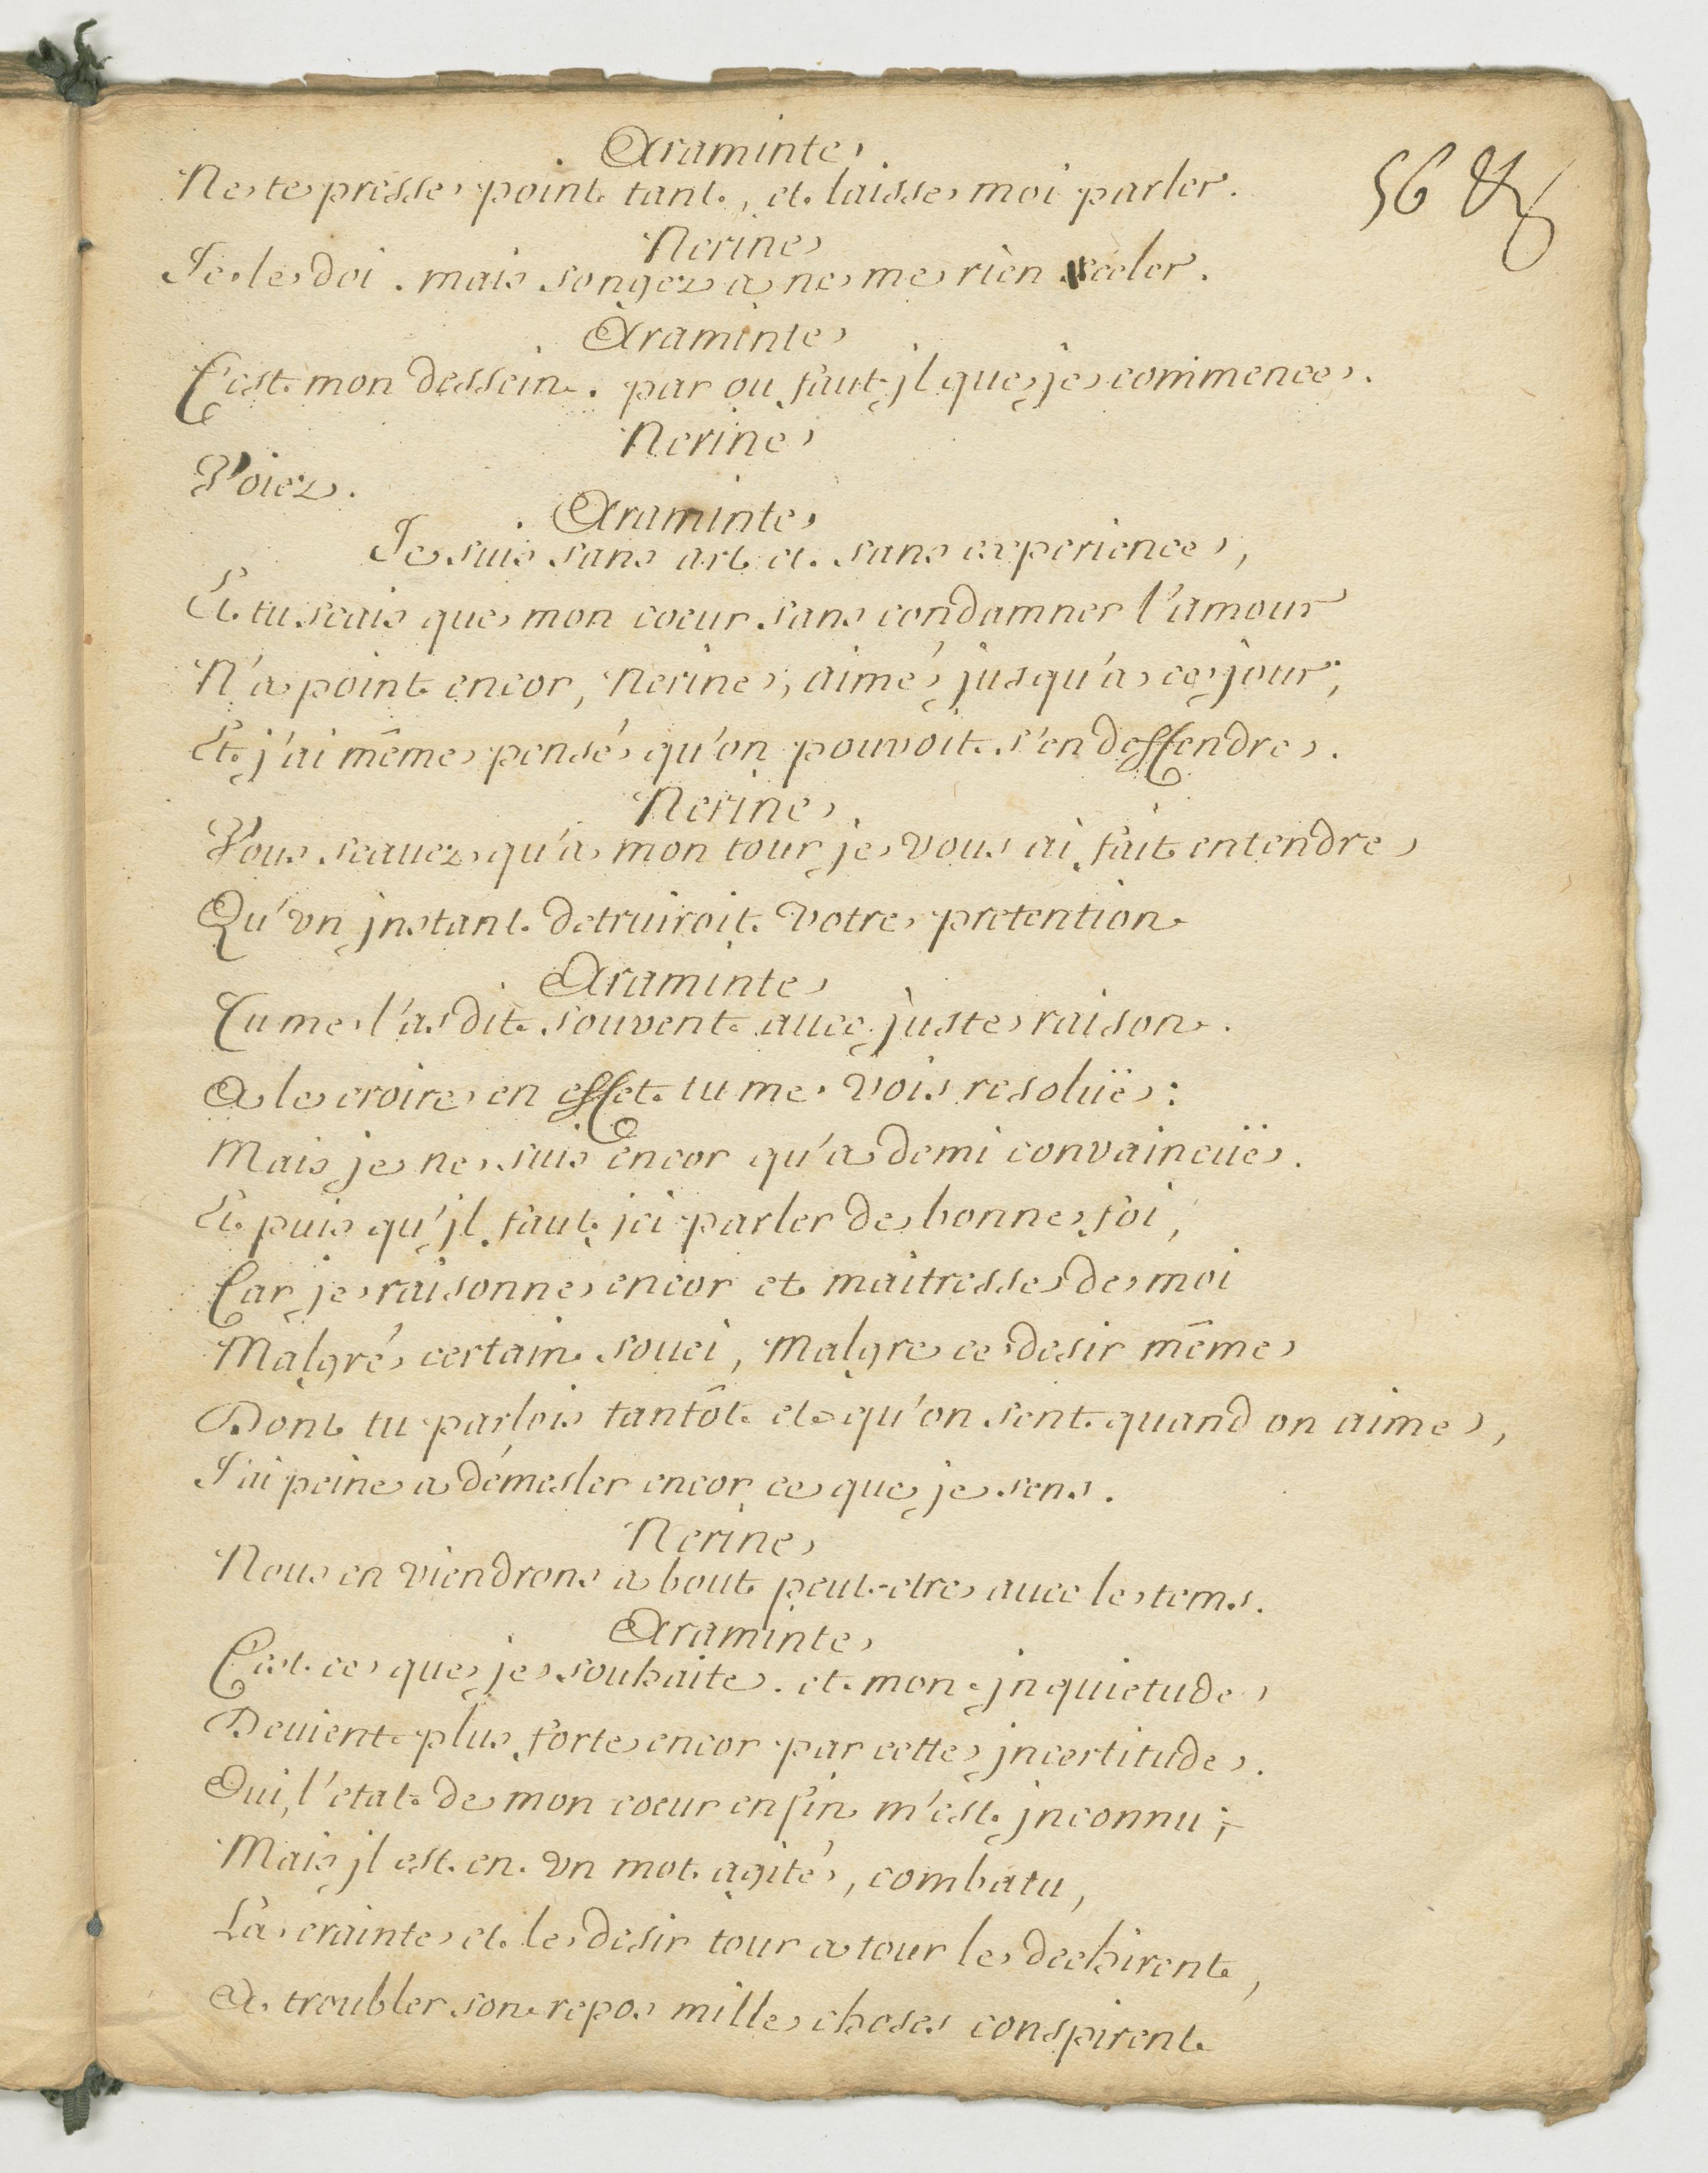 Araminte
Ne te presse point tant, et laisse moi parler.
56
Nerine
Je le doi. mais songez a ne me rien celer.
Araminte
C'est mon dessein. par ou faut jl que je commence.
Nerine
Voiez.
Araminte
Je suis sans art et sans experience,
Et tu scais que mon coeur sans condamner l'amour
N'a point encor, Nerine, aimé jusqu'a ce jour,
Et j'ai même pensé qu'on pouvoit s'en deffendre.
Nerine
Vous scauez qu'a mon tour je vous ai fait entendre
Qu'vn jnstant detruiroit votre pretention
Araminte
Tu me l'as dit souvent auec juste raison.
A le croire en effet tu me vois resoluë:
Mais je ne suis encor qu'a demi convaincuë.
Et puis qu'jl faut jci parler de bonne foi,
Car je raisonne encor et maitresse de moi
Malgré certain souci, Malgre ce desir même
Dont tu parlois tantôt et qu'on sent quand on aime,
J'ai peine a démesler encor ce que je sens.
Nerine
Nous en viendrons a bout peut-etre auec le tems.
Araminte
C'est ce que je souhaite. et mon jnquietude
Deuient plus forte encor par cette jncertitude.
Oui, l'etat de mon coeur enfin m'est jnconnu;
Mais jl est en vn mot agité, combatu,
La crainte et le desir tour a tour le dechirent,
A troubler son repos mille choses conspirent